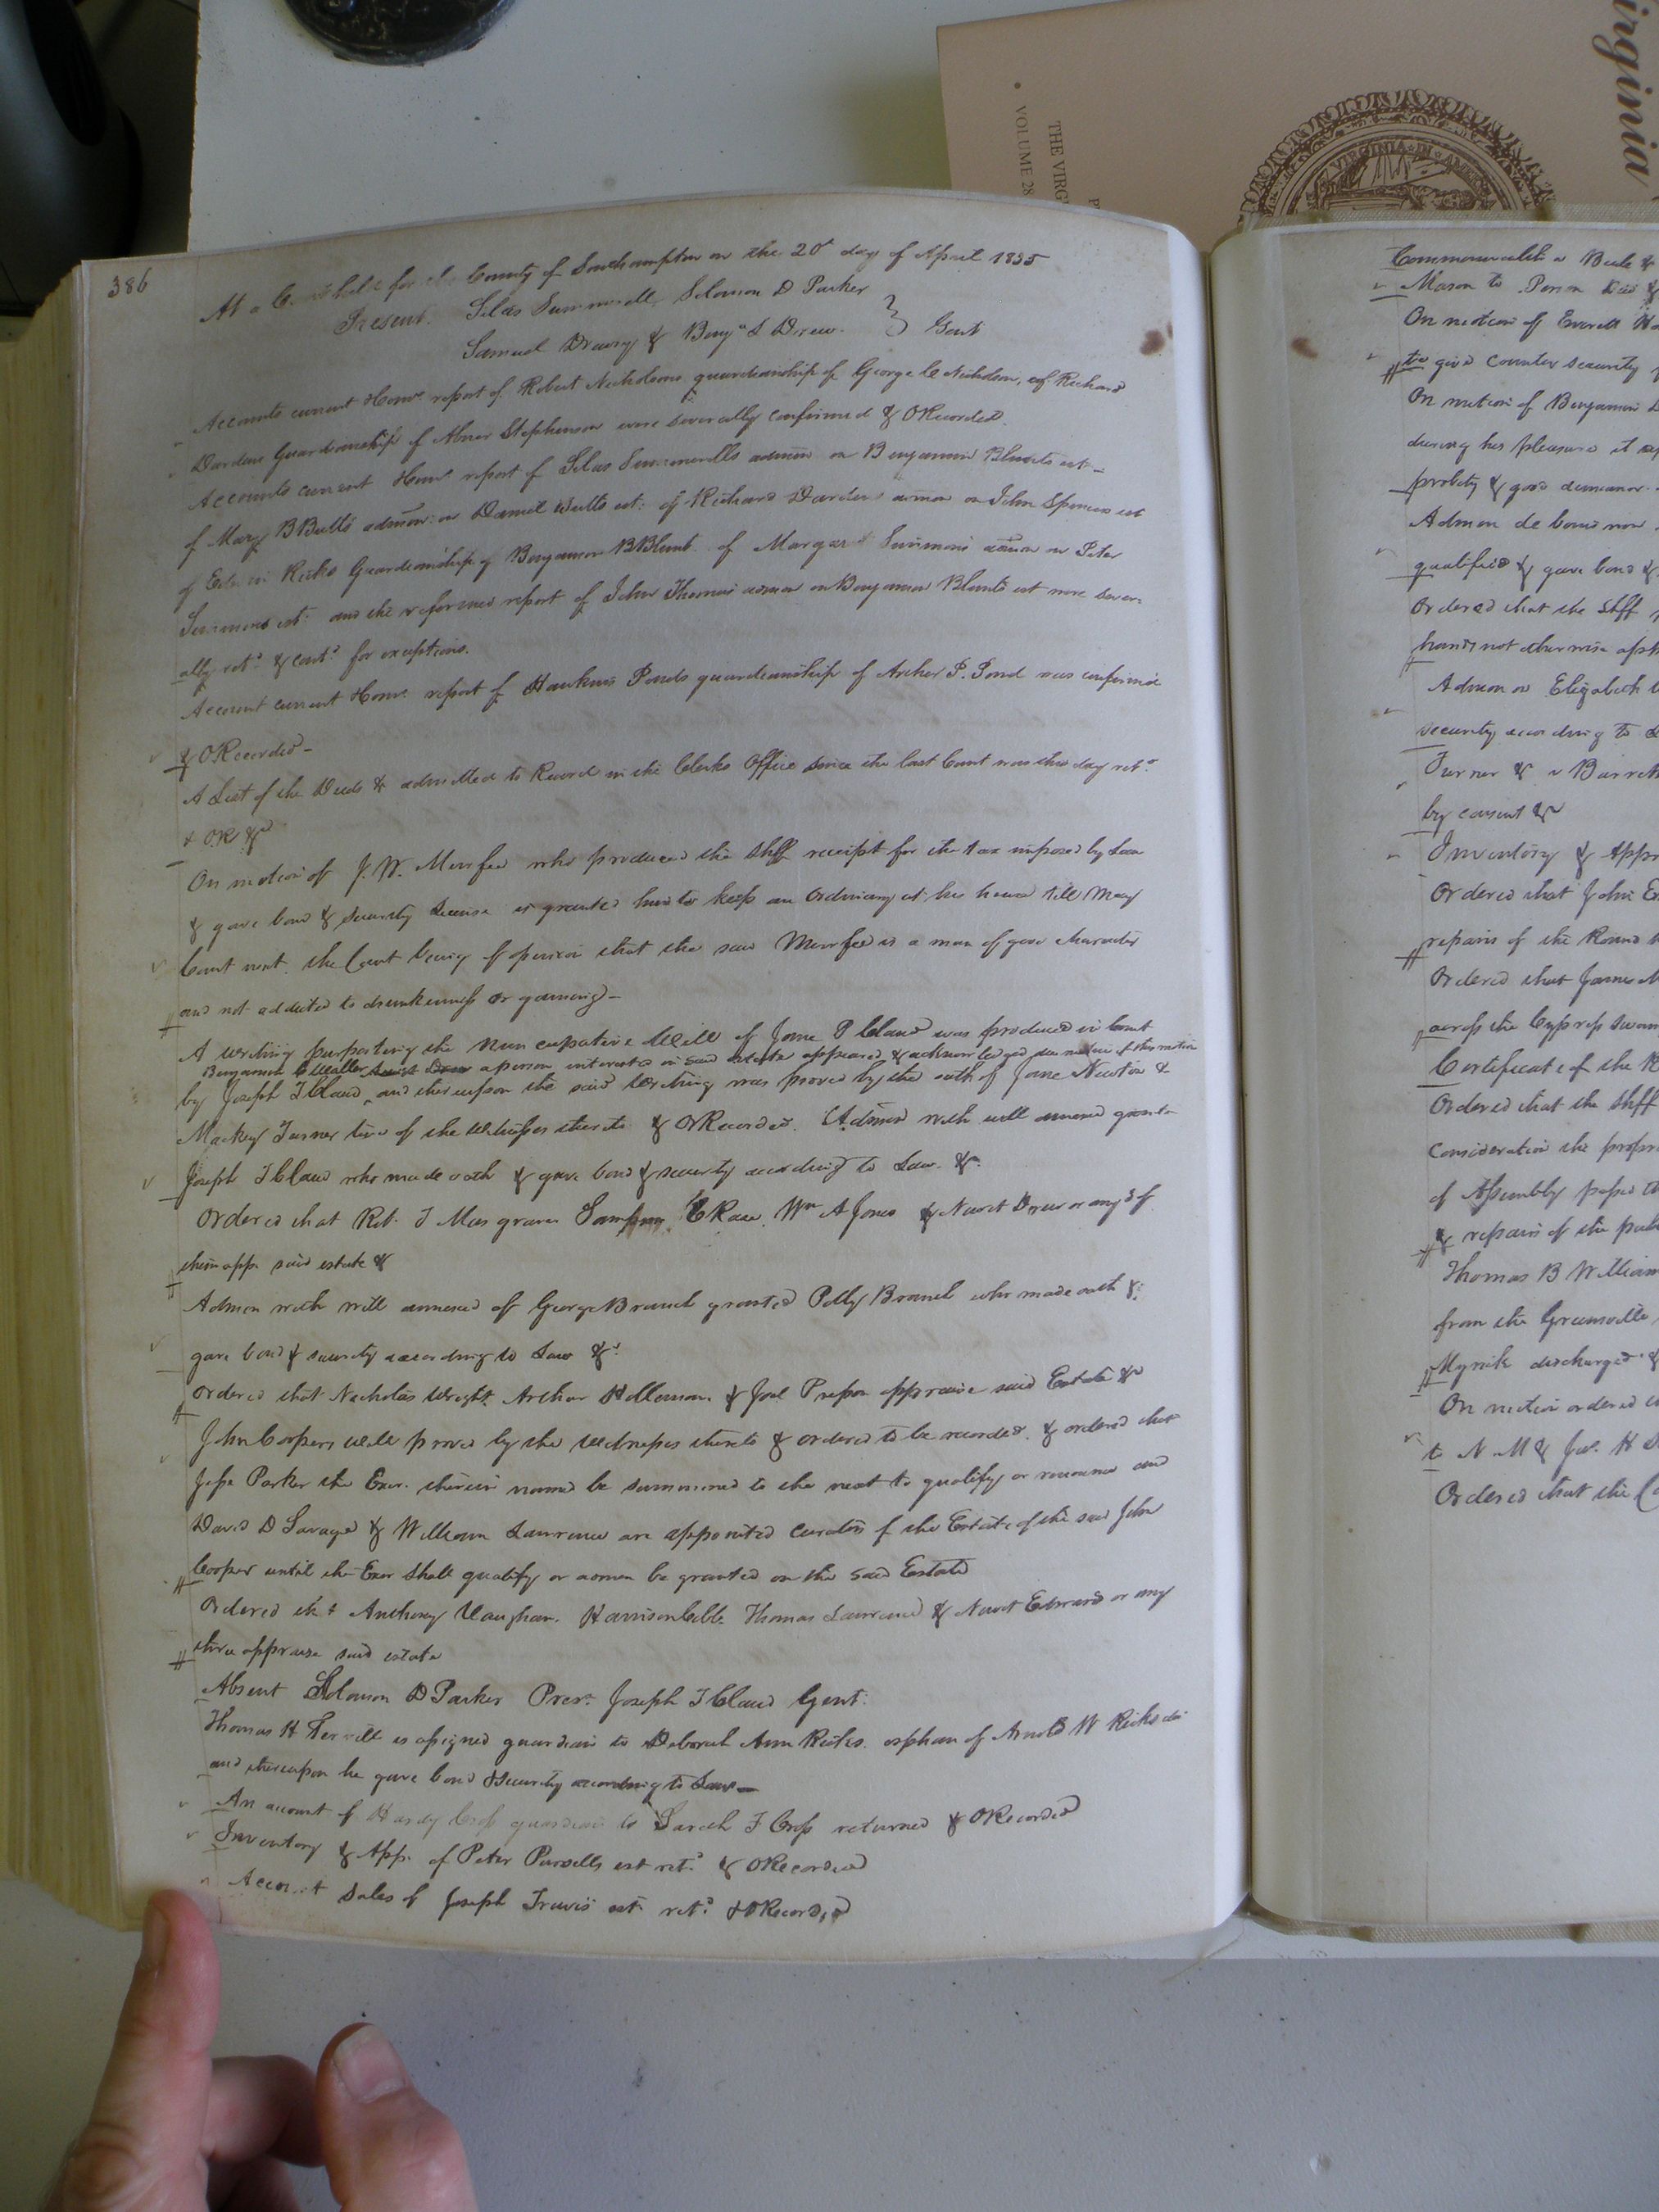 386
At a Court held for the County of Southampton on the 20th day of April 1835
Present. Silas Summerell, Solomon D Parker
Samuel Drewry & Benjn L Drew. } Gent
Accounts current Home report of Robert Nicholsons guardianship of George C Nicholson, of Richard
Dardens Guardianship of Abner Stephenson were severally confirmed & ORecorded.
Accounts current Home report of Silas Summerells admon on Benjamin Blunts est
of Mary B Butts admon: on Daniel Butts est: of Richard Dardens admon on John Spences est
of Edwin Ricks Guardianship of Benjamin B Blunt. of Margaret Simmons admon on Peter
Simmons est: and the reformed report of John Thomas admon on Benjamin Blunts est were sever-
ally retd & contd for exceptions.
Account current Home report of Hawkins Ponds guardianship of Archer P. Pond was confirmed
& ORecorded -
A List of the Deeds & admitted to Record in the Clerks Office since the last Court was this day retd
& OR &c
On motion of J. W. Murfee who produced the Shff receipt for the tax imposed by Law
& gave bond & security License is granted him to keep an Ordinary at his house till May
Court next. the Court being of opinion that the said Murfee is a man of good character
and not addicted to drunkenness or gaming -
A writing purporting the Nuncupative Will of Jane P Claud was produced in Court
Benjamin C Waller a person interested in said estate appeared & acknowledged due notice of this motion
by Joseph T Claud, and thereupon the said Writing was proved by the oath of Jane Newton &
Mackey Turner two of the Witnesses thereto & ORecorded. Admon with will annexed granted
Joseph T Claud who made oath & gave bond & security according to Law. &c.
Ordered that Rit. T Musgrave Sampson C Reese, Wm A Jones & Newit Drew or any 3 of
them app. said estate &
Admon with will annexed of George Branch granted Polly Branch who made oath &
gave bond & security according to Law &c.
Ordered that Nicholas Wright. Arthur Holleman & Joel Presson appraise said Estate &c
John Coopers will proved by the Witnesses thereto & ordered to be recorded. & ordered that
Jesse Parker the Exor. therein named be summoned to the next to qualify or renounce and
David D Savage & William Lawrence are appointed curators of the Estate of the said John
Cooper until the Exor shall qualify or admon be granted on the said Estate
Ordered that Anthony Vaughan. Harrison Cobb. Thomas Lawrence & Newit Edwards or any
three appraise said estate
Absent Solomon D Parker Prest. Joseph T Claud Gent.
Thomas H Ferrell is assigned guardian to Deborah Ann Ricks. orphan of Arnold W Ricks
and thereupon he gave bond & security according to Law -
An account of Hardy Cross guardian to Sarah T Cross returned & ORecorded
Inventory & App. of Peter Purcells est retd & ORecorded
Account Sales of Joseph Travis est retd & ORecorded
Virginia
THE VIRG
VOLUME 28
VIRGINIA IN A
Commonwealth v Beale &
Mason to Person Deed &
On motion of Everett
to give counter security
On motion of Benjamin
during his pleasure it
probity & good demeanor.
Admon de bonis non
qualified & gave bond &
Ordered that the Shff
hands not otherwise
Admon on Elizabeth
security according to
Turner & v Barrett
by consent &c
Inventory & Appr
Ordered that John
repairs of the Road
Ordered that James
across the Cypress Swam
Certificate of the
Ordered that the Shff
Consideration the propr
of Assembly passed th
& repairs of the pub
Thomas B William
from the Greensville
Myrick discharged &
On motion ordered
to N. M & Jas. H
Ordered that the